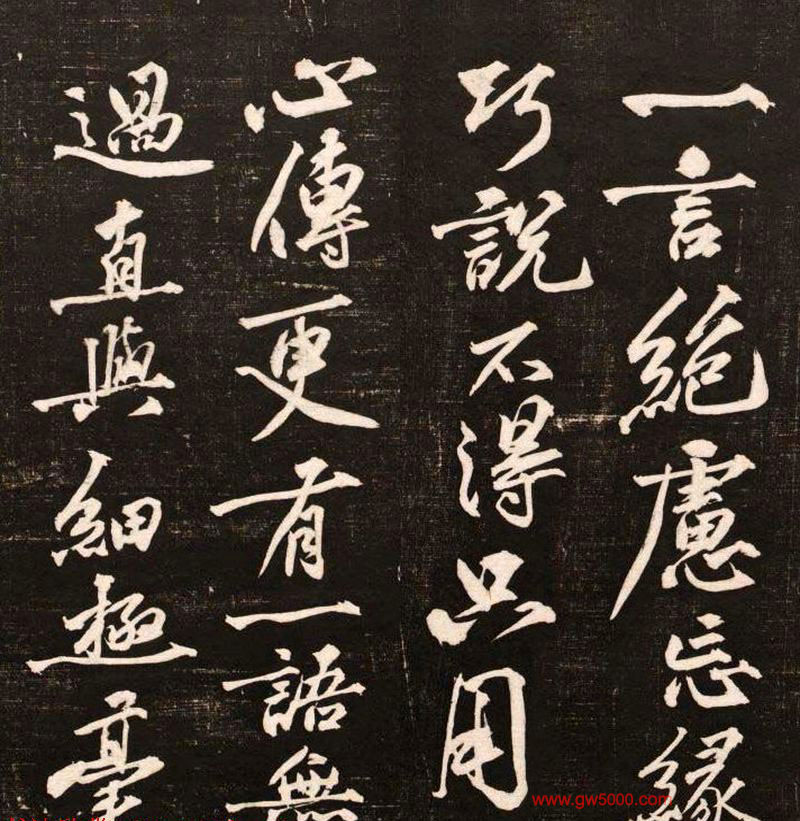 一言絶慮忘縁
巧説不得只用
心傳更有一語無
過直與細極毫
www.gw5000.com